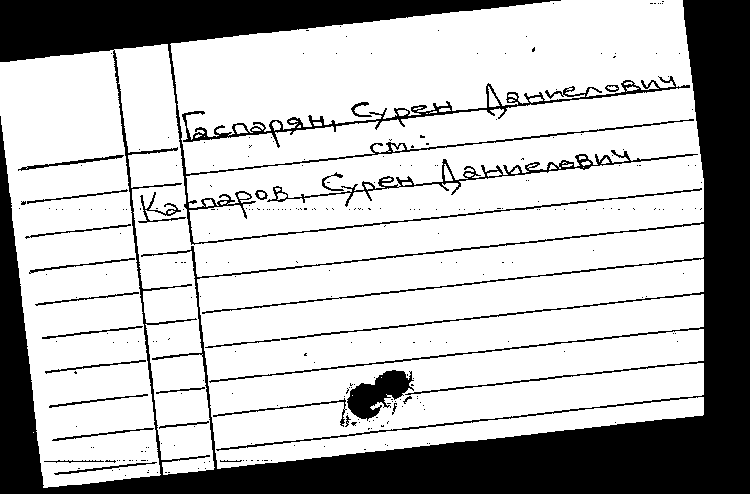 Гаспарян, Сурен Даниелович
см.:
Каспаров, Сурен Даниелович.